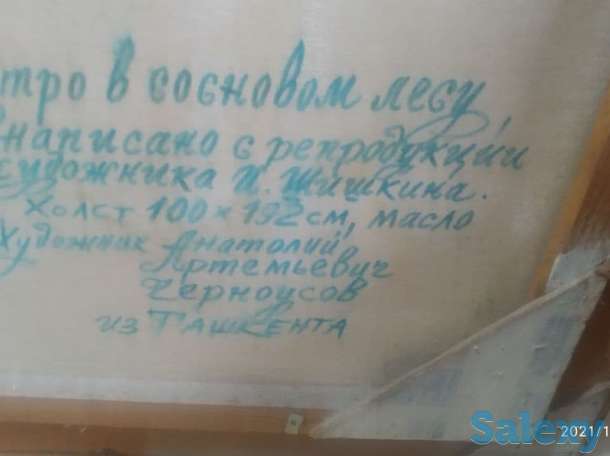 тро в сосновом лесу,
написано с репродукции
художника И. Шишкина.
Холст 100 × 192 см, масло
Художник Анатолий
Артемьевич
Черноусов
из Ташкента
Salexy
2021/1